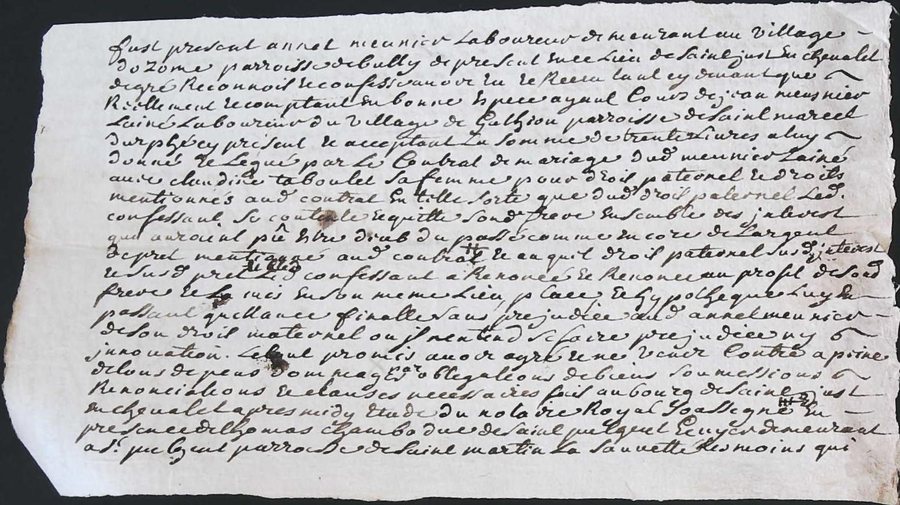 fust present annet meunier Laboureur demeurant au village
du zome parroisse de bully de present en ce Lieu de Saint just En chevalet
de gré Reconnois et confesse avoir Eu et Receu tant cy devant que
Reellement et comptant En bonne Espece aynul Cours de jean meusnier
Lainé Laboureur du village de parroisse de Saint marcel
Durphé cy present et acceptant La Somme de trente Livres a luy
donné et Legué par Le Contrat de mariage dud meunier Lainé
avec claudine taboulet Sa femme pour droit paternel et droits
mentionnés aud contrat En telle Sorte que dud droit paternel Led.
confessant Se contente et quitte Sond frere Ensemble des interest
qui auroient pû Estre deub du passé comme encores de Largent
de pret mentionné aud contrat et auquil droit paternel Susd interest
et Susd pret Led confessant a Renoncé et Renonce au profit de Sond
frere et La mis En Son meme Lieu place et hypotheque Luy En
passant quittance finalle Sans prejudice aud annet meunier
de Son droit maternel ou il nentend Se faire prejudice ny
innovation. Le tout promis avoir agré et ne venir Contre a peine
de tous depens dommages obligations de biens Soumessions
Renonciations et clauses necessaires fait au bourg de Saint just
En chevalet apres midy Etude du notaire Royal Soussigné En
presence de thomas chambodue de Saint pulgent Ecuyer demeurant
a St. pulgent parroisse de Saint martin La Sauvetté tesmoins qui